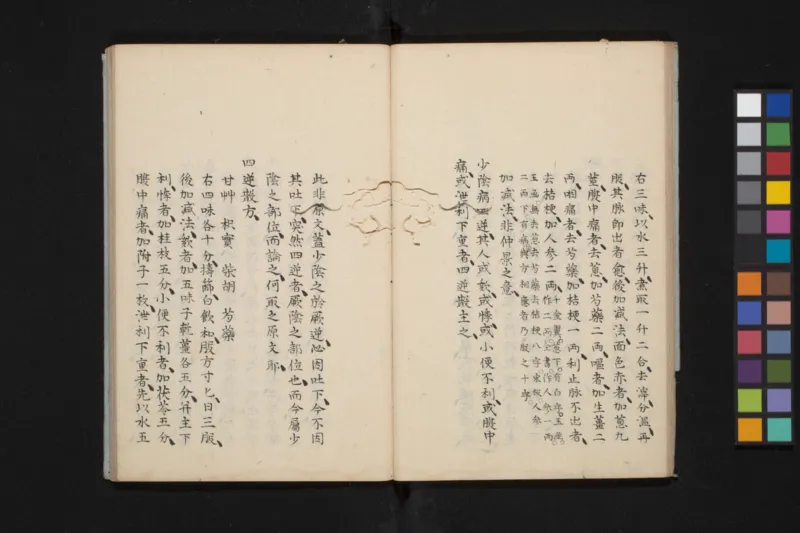 右三味以水三升煮取一升二合去滓分溫再
服其脉卽出者愈後加减法面色赤者加葱九
莖腹中痛者去葱加芍藥二兩嘔者加生薑二
兩咽痛者去芍藥加桔梗一兩利止脉不出者
去桔梗加人參二兩
加减法非仲景之意
少陰病四逆其人或欬或悸或小便不利或腹中
痛或泄利下重者四逆散主之
此非原文蓋少陰之於厥逆必因吐下今不因
其吐下突然四逆者厥陰之部位也而今屬少
陰之部位而論之何取之原文耶
四逆散方
甘艸 枳實 柴胡 芍藥
右四味各十分擣篩白飮和服方寸匕日三服
後加减法欬者加五味子乾薑各五分并主下
利悸者加桂枝五分小便不利者加茯苓五分
腹中痛者加附子一枚泄利下重者先以水五